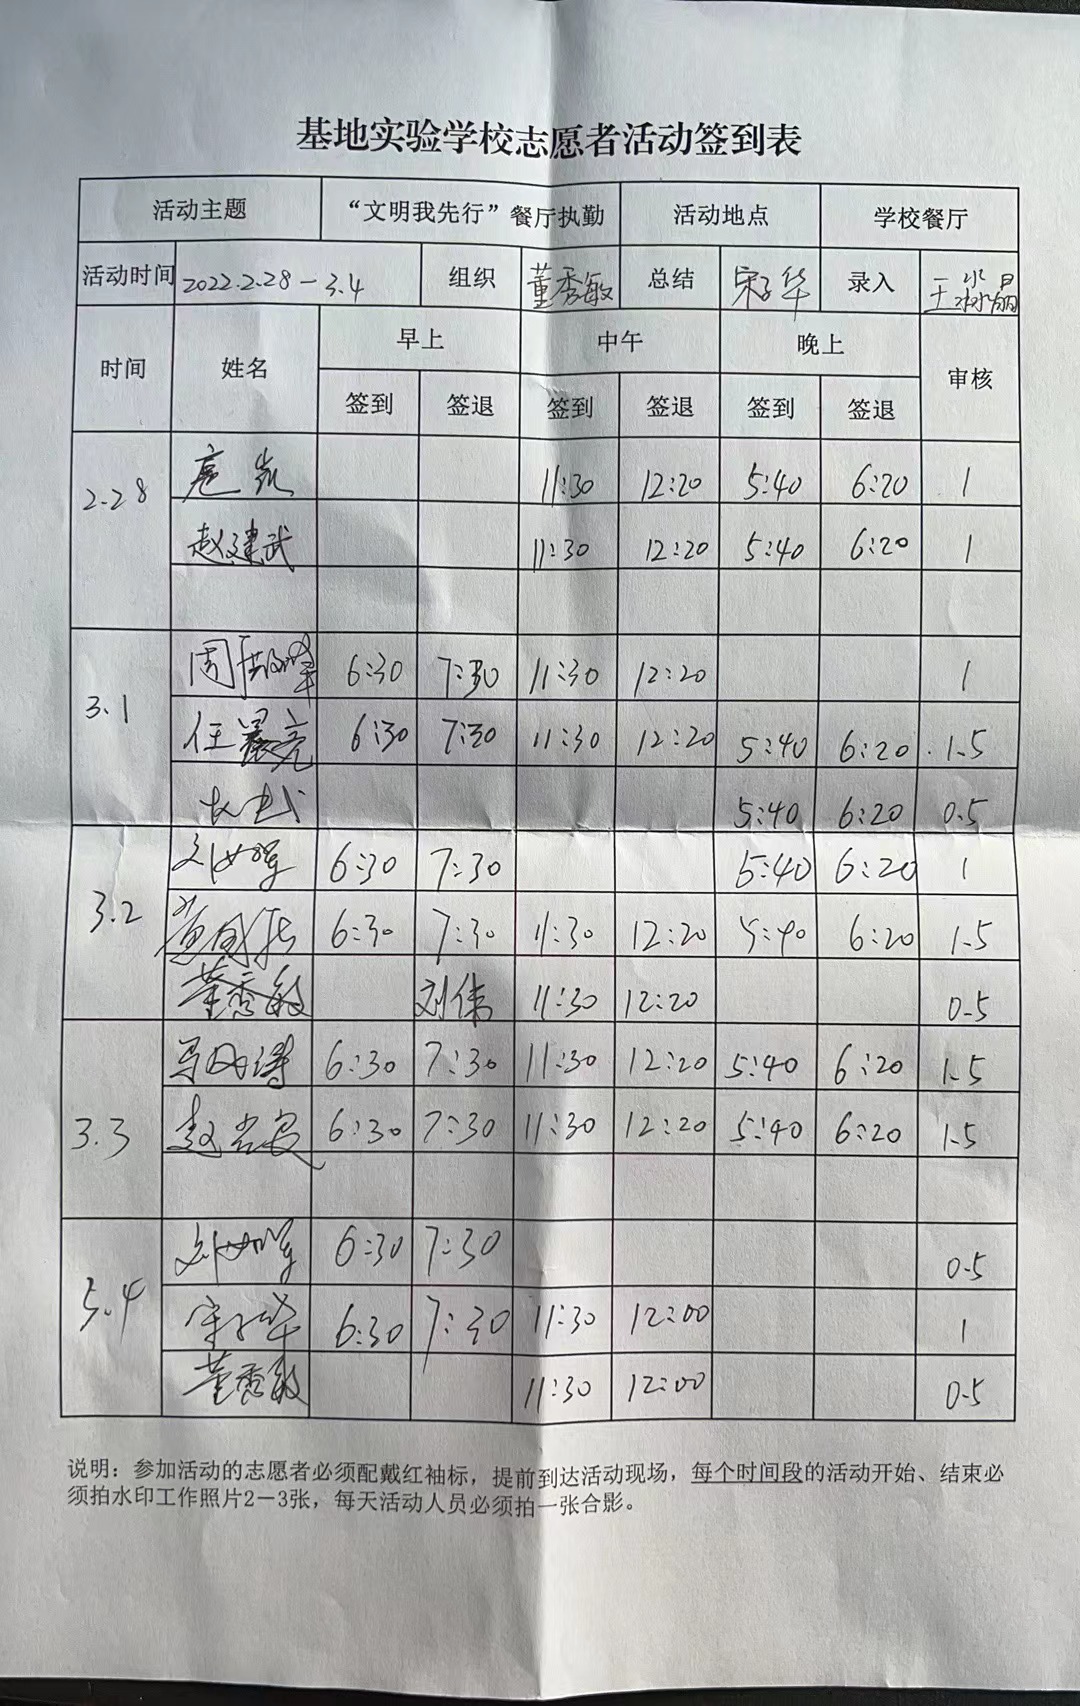 基地实验学校志愿者活动签到表
活动主题 “文明我先行”餐厅执勤 活动地点 学校餐厅
活动时间 2022.2.28-3.4 组织 董秀敏 总结 宋子华 录入 王淼晶
时间 姓名 早上 中午 晚上 审核
签到 签退 签到 签退 签到 签退
2.28 11:30 12:20 5:40 6:20 1
赵建武 11:30 12:20 5:40 6:20 1
3.1 周 6:30 7:30 11:30 12:20 1
任晨亮 6:30 7:30 11:30 12:20 5:40 6:20 1.5
5:40 6:20 0.5
3.2 6:30 7:30 5:40 6:20 1
6:30 7:30 11:30 12:20 5:40 6:20 1.5
董秀敏 刘伟 11:30 12:20 0.5
3.3 6:30 7:30 11:30 12:20 5:40 6:20 1.5
赵 6:30 7:30 11:30 12:20 5:40 6:20 1.5
3.4 6:30 7:30 0.5
宋子华 6:30 7:30 11:30 12:00 1
董秀敏 11:30 12:00 0.5
说明：参加活动的志愿者必须配戴红袖标，提前到达活动现场，每个时间段的活动开始、结束必
须拍水印工作照片2－3张，每天活动人员必须拍一张合影。